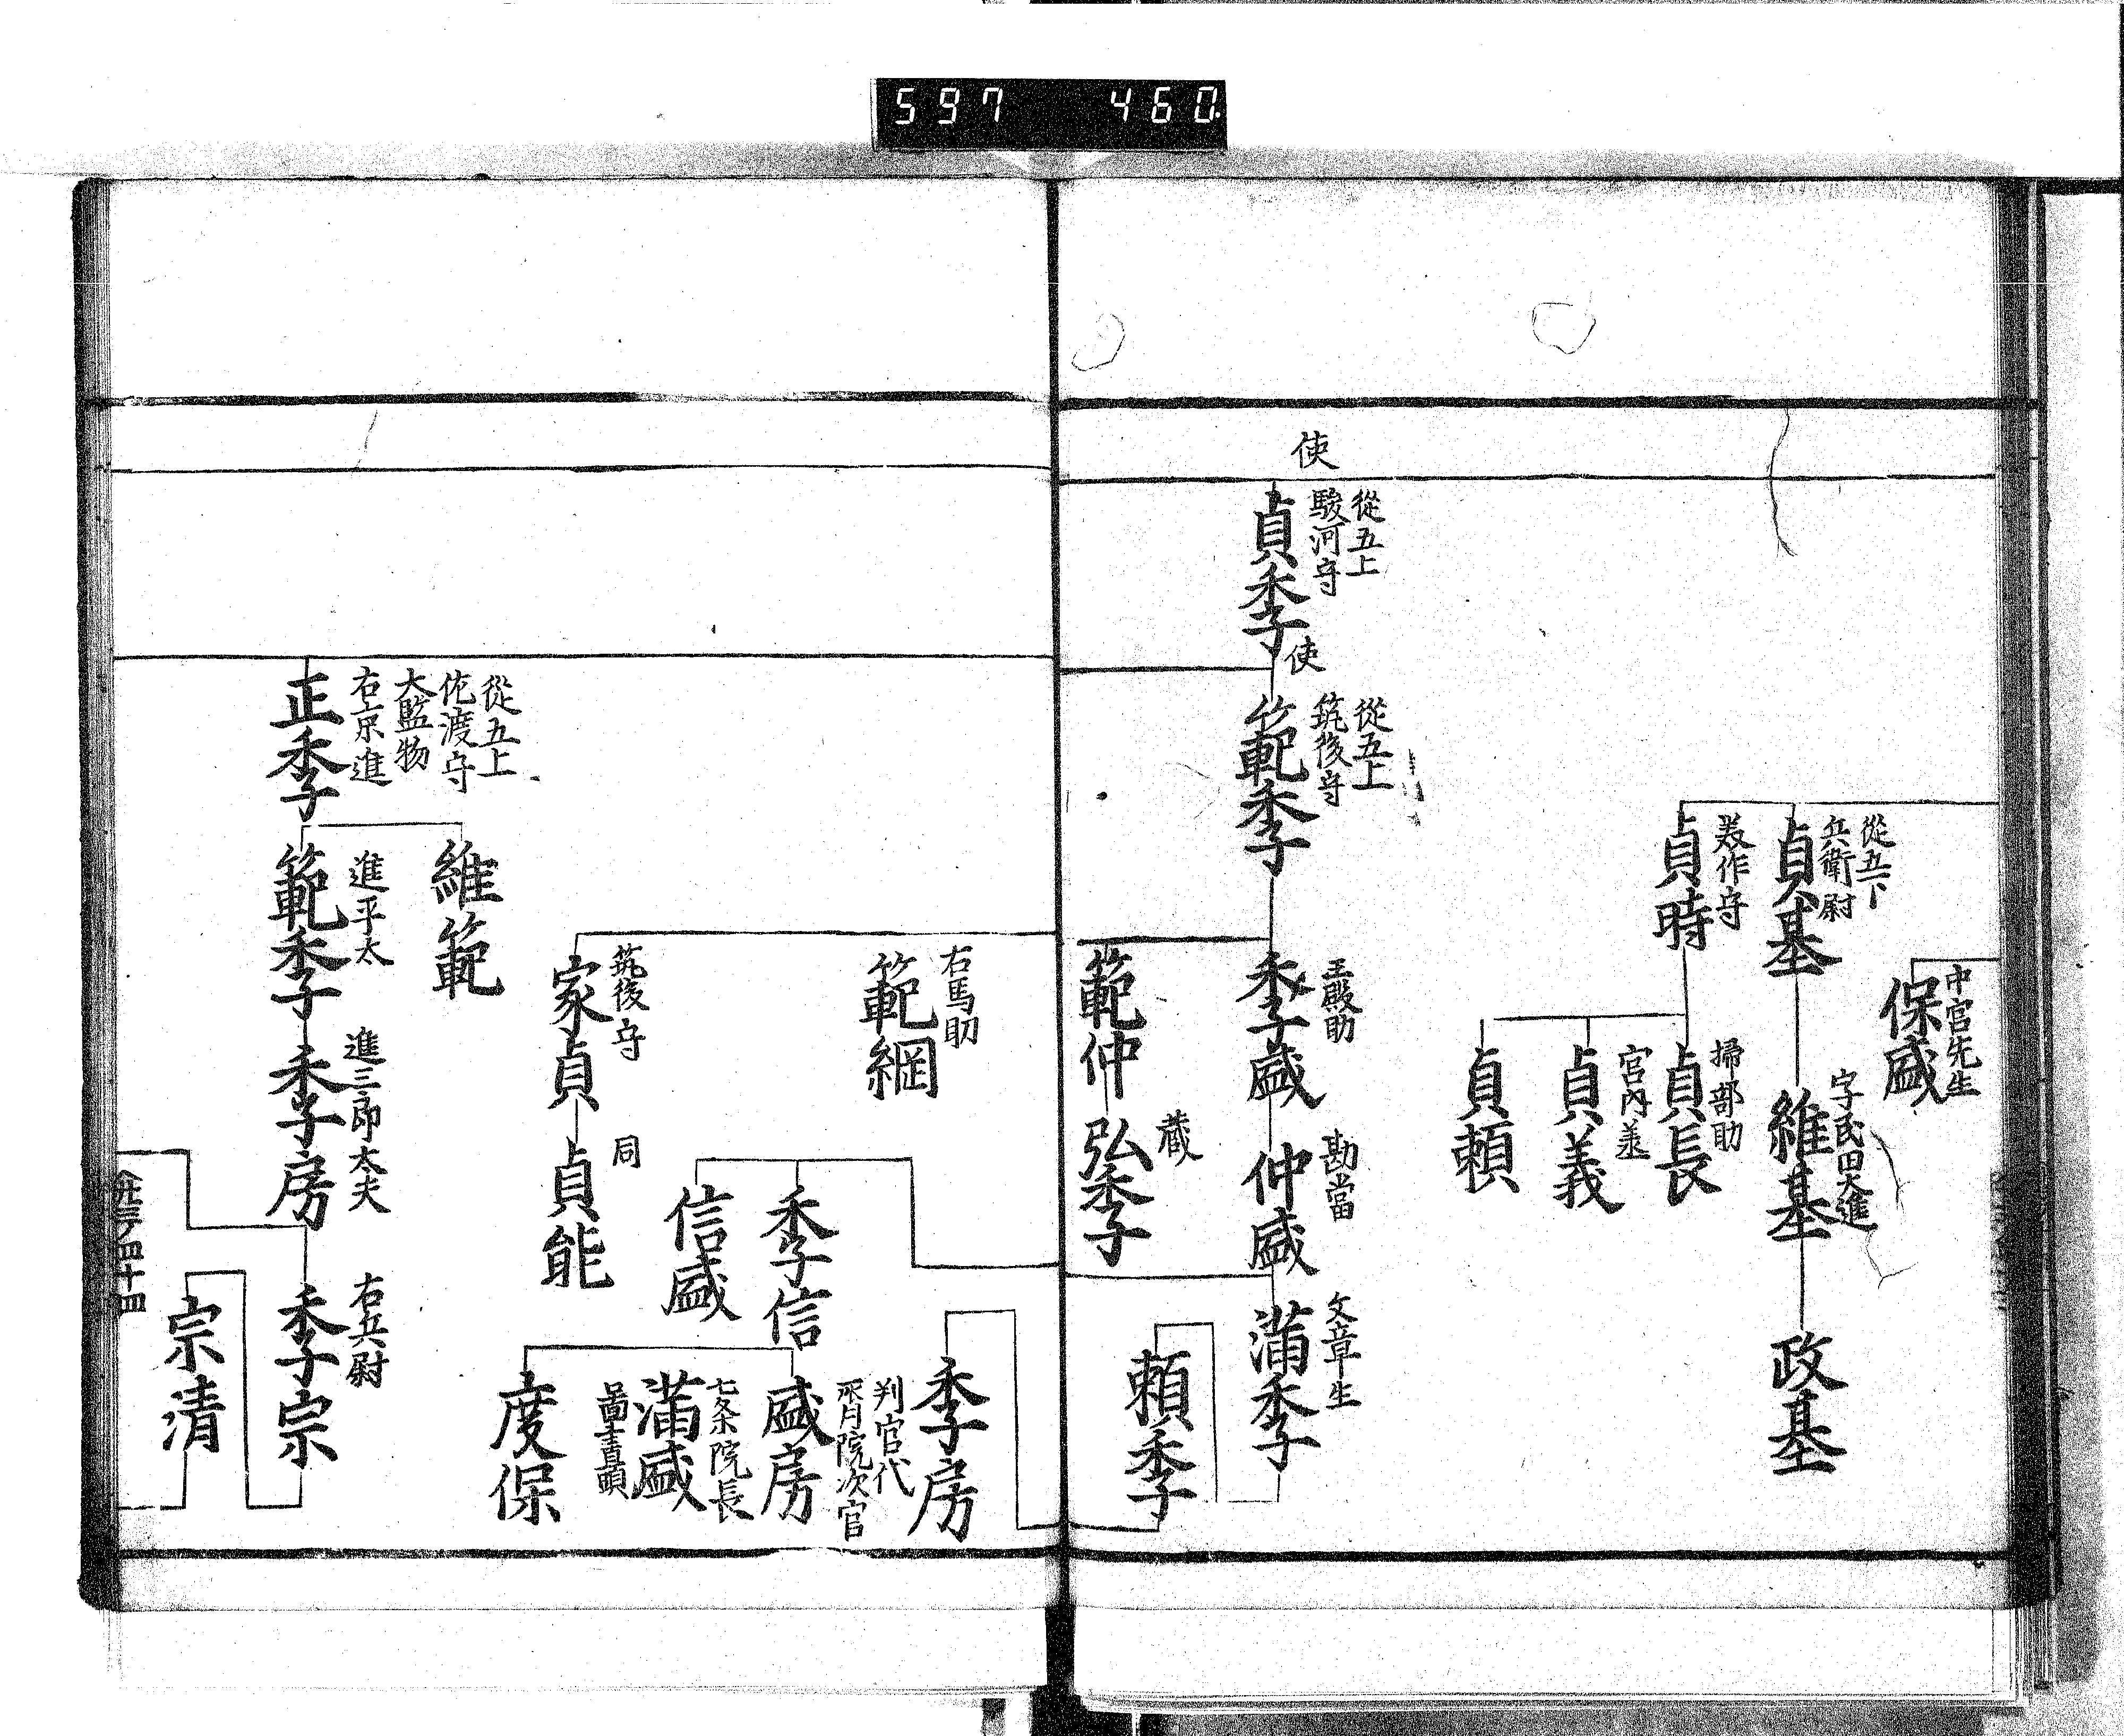 597 460
保盛
中宮先生
從五下
兵衛尉
貞基
字民田大進
維基
政基
美作守
貞時
掃部助
貞長
宮内丞
貞義
貞頼
使
從五上
駿河守
貞季
使
從五上
筑後守
範季
主殿助
季盛
勘當
仲盛
文章生
満季
頼季
範仲
蔵
弘季
右馬助
範綱
季房
季信
信盛
判官代
院次官
盛房
七条院長
満盛
度保
筑後守
家貞
同
貞能
從五上
佐渡守
大監物
右京進
正季
維範
進平太
範季
進三郎大夫
季房
右兵尉
季宗
宗清
四十四